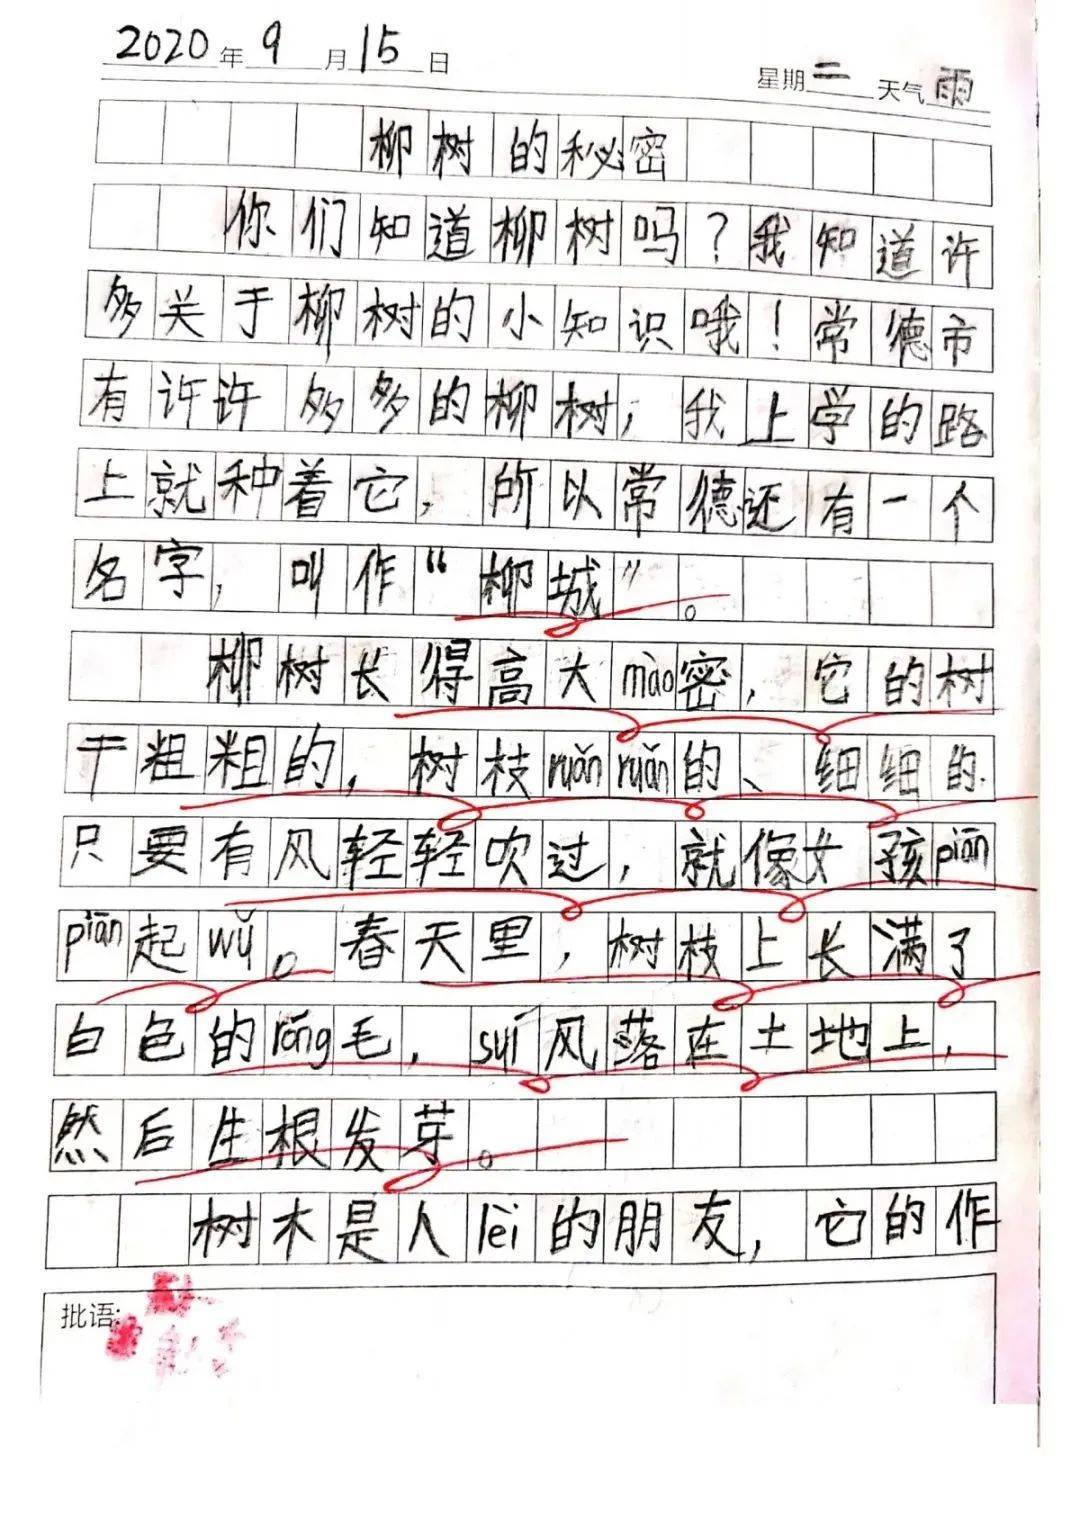 2020年9月15日 星期二天气雨
柳树的秘密
你们知道柳树吗？我知道许
多关于柳树的小知识哦！常德市
有许许多多的柳树，我上学的路
上就种着它，所以常德还有一个
名字，叫作“柳城”。
柳树长得高大mào密，它的树
干粗粗的，树枝ruǎnruǎn的、细细的.
只要有风轻轻吹过，就像女孩piān
piān起wǔ。春天里，树枝上长满了
白色的róng毛，suí风落在土地上，
然后生根发芽。
树木是人lèi的朋友，它的作
批语: